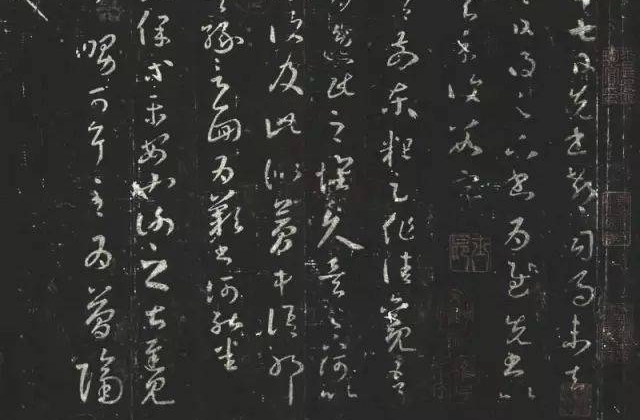 七日先書郗司馬未去
日得足下書為慰先書以
示復數字
前東粗足作佳觀吾
逸民之懷久矣足下何以
復及此似夢中語耶
緣言面為歎書何能悉
保等平安也謝之甚遲見
舅可耳至為簡隔